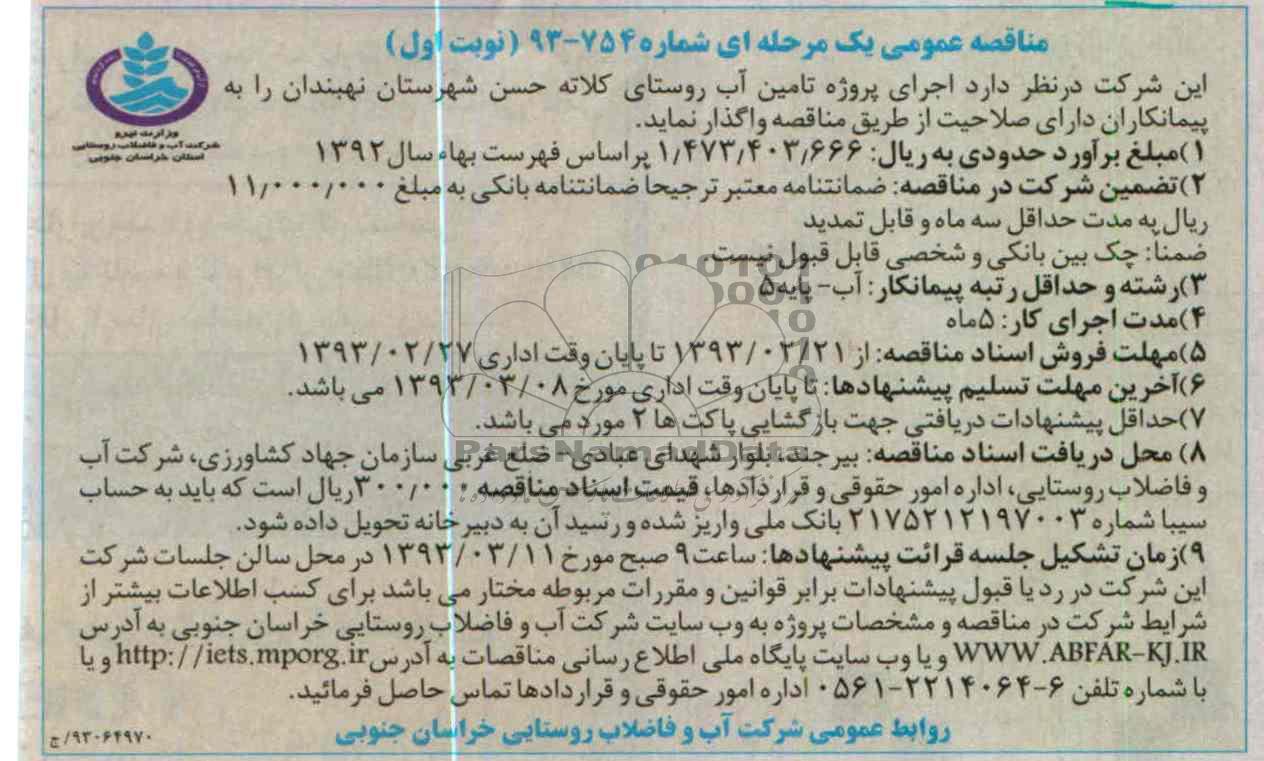 مناقصه عمومی یک مرحله ای شماره ۷۵۴-۹۳ (نوبت اول)
وزارت نیرو
شرکت آب و فاضلاب روستایی
استان خراسان جنوبی
این شرکت درنظر دارد اجرای پروژه تامین آب روستای کلاته حسن شهرستان نهبندان را به
پیمانکاران دارای صلاحیت از طریق مناقصه واگذار نماید.
۱)مبلغ برآورد حدودی به ریال: ۱٫۴۷۳٫۴۰۳٫۶۶۶ براساس فهرست بهاء سال ۱۳۹۲
۲)تضمین شرکت در مناقصه: ضمانتنامه معتبر ترجیحا ضمانتنامه بانکی به مبلغ ۱۱٫۰۰۰٫۰۰۰
ریال به مدت حداقل سه ماه و قابل تمدید
ضمنا: چک بین بانکی و شخصی قابل قبول نیست.
۳)رشته و حداقل رتبه پیمانکار: آب- پایه۵
۴)مدت اجرای کار: ۵ماه
۵)مهلت فروش اسناد مناقصه: از ۱۳۹۳/۰۲/۲۱ تا پایان وقت اداری ۱۳۹۳/۰۲/۲۷
۶)آخرین مهلت تسلیم پیشنهادها: تا پایان وقت اداری مورخ ۱۳۹۳/۰۳/۰۸ می باشد.
۷)حداقل پیشنهادات دریافتی جهت بازگشایی پاکت ها ۲ مورد می باشد.
ParsNamadData
۸) محل دریافت اسناد مناقصه: بیرجند، بلوار شهدای عبادی- ضلع غربی سازمان جهاد کشاورزی، شرکت آب
و فاضلاب روستایی، اداره امور حقوقی و قراردادها، قیمت اسناد مناقصه ۳۰۰٫۰۰۰ریال است که باید به حساب
سیبا شماره ۲۱۷۵۲۱۲۱۹۷۰۰۳ بانک ملی واریز شده و رسید آن به دبیرخانه تحویل داده شود.
۹)زمان تشکیل جلسه قرائت پیشنهادها: ساعت۹ صبح مورخ ۱۳۹۳/۰۳/۱۱ در محل سالن جلسات شرکت
این شرکت در رد یا قبول پیشنهادات برابر قوانین و مقررات مربوطه مختار می باشد برای کسب اطلاعات بیشتر از
شرایط شرکت در مناقصه و مشخصات پروژه به وب سایت شرکت آب و فاضلاب روستایی خراسان جنوبی به آدرس
WWW.ABFAR-KJ.IR و یا وب سایت پایگاه ملی اطلاع رسانی مناقصات به آدرس http://iets.mporg.ir و یا
با شماره تلفن ۶-۲۲۱۴۰۶۴-۰۵۶۱ اداره امور حقوقی و قراردادها تماس حاصل فرمائید.
روابط عمومی شرکت آب و فاضلاب روستایی خراسان جنوبی
۹۳۰۶۴۹۷۰/ج